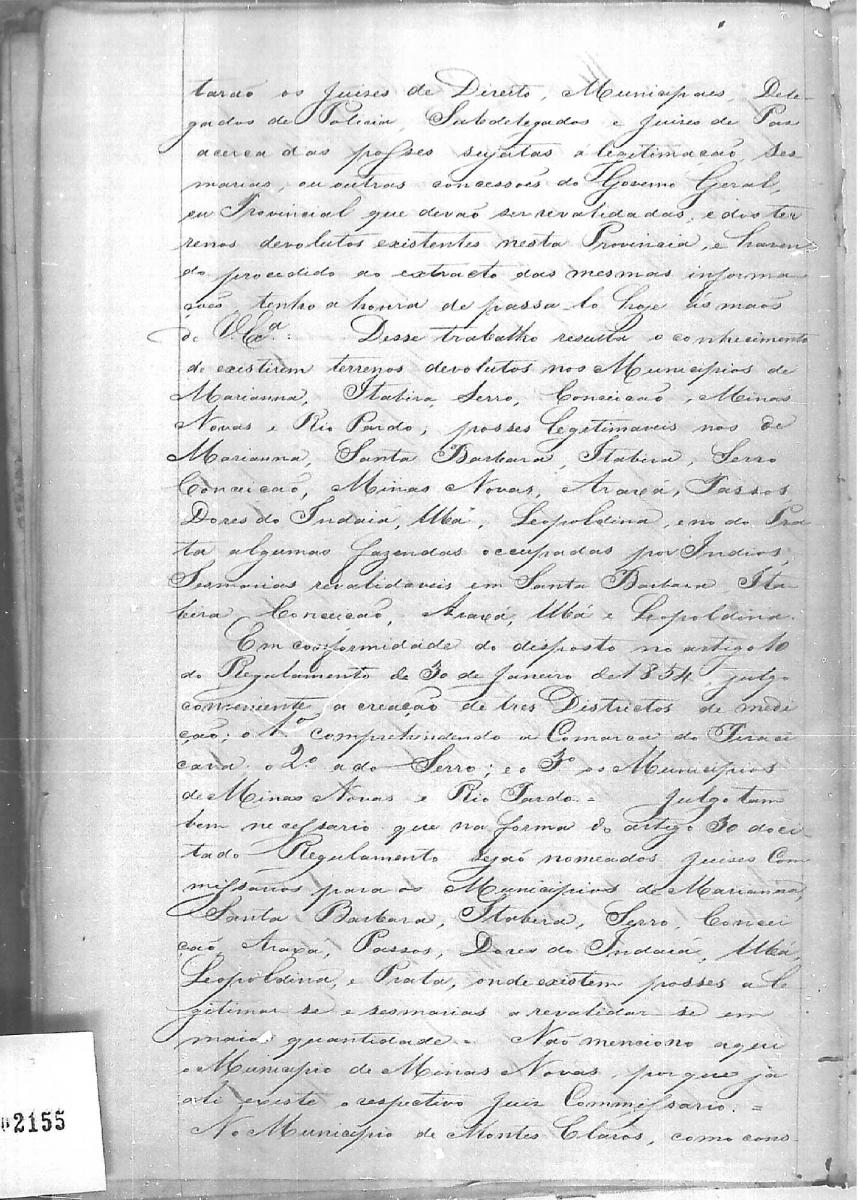 tarão os Juises de Direito, Municipaes, Dele-
gados de Policia, Subdelegados e Juises de Pas
acerca das posses sujeitas a legitimação, ses
marias, ou outras concessões do Governo Geral,
ou Provincial que devão ser revalidadas, e dos ter
renos devolutos existentes nesta Provincia, e haven-
do procedido ao extracto das mesmas informa
ções tenho a honra de passal-o hoje ás mãos
de V. Exª. Desse trabalho resulta o conhecimento
de existirem terrenos devolutos nos Municipios de
Marianna, Itabira, Serro, Conceicão, Minas
Novas e Rio Pardo; posses legitimaveis nos de
Marianna, Santa Barbara, Itabira, Serro
Conceicão, Minas Novas, Araxá, Passos,
Dores do Indaiá, Ubá, Leopoldina, e no do Pra
ta algumas fazendas occupadas por Indios;
Sesmarias revalidaveis em Santa Barbara, Ita
bira, Conceicão, Araxá, Ubá e Leopoldina.
Em conformidade do disposto no artigo 10
do Regulamento de 30 de Janeiro de 1854 julgo
conveniente a creação de tres Districtos de medi
ção; o 1º comprehendendo a Comarca do Piraci
cava o 2º a do Serro; e o 3º os Municipios
de Minas Novas e Rio Pardo = Julgo tam
bem necessario que na forma do artigo 30 do ci-
tado Regulamento sejão nomeados Juises Com
missarios para os Municipios de Marianna,
Santa Barbara, Itabira, Serro, Concei
ção, Araxa, Passos, Dores do Indaiá, Ubá,
Leopoldina, e Prata, onde existem posses a le
gitimar se e sesmarias a revalidar se em
maior quantidade = Não menciono aqui
o Municipio de Minas Novas, porque já
ali existe o respectivo Juiz Commissario. =
No Municipio de Montes Claros, como cons-
02155